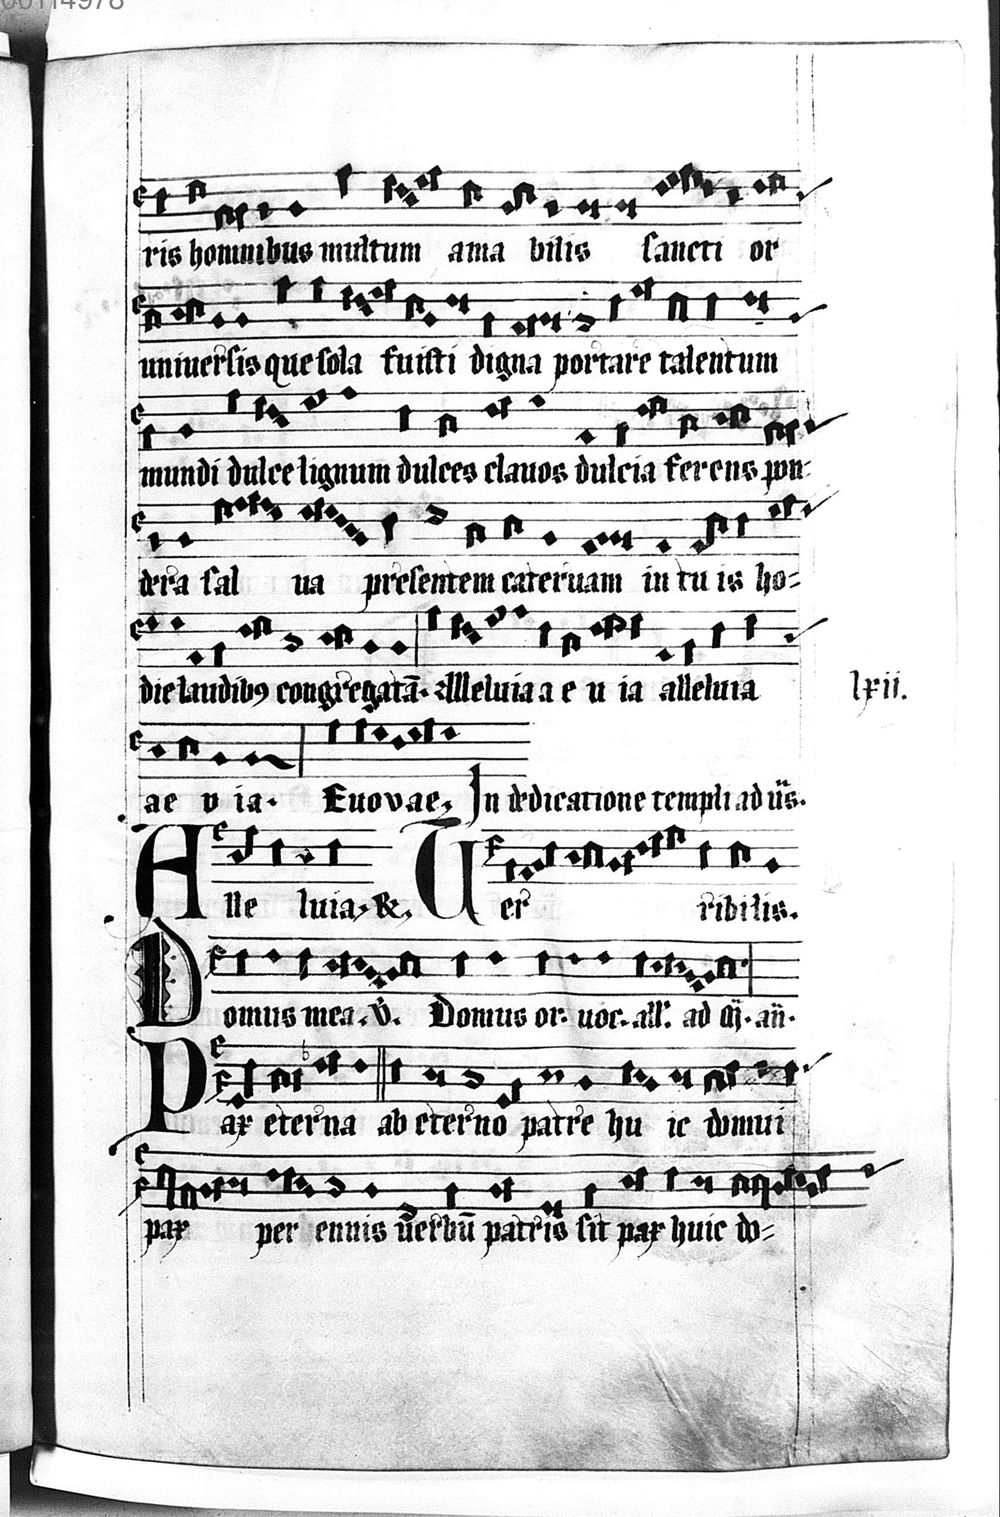 00114978
ris hominibus multum ama bilis sancti or
universis que sola fuisti digna portare talentum
mundi dulce lignum dulces clavos dulcia ferens pon-
dera sal va presentem catervam in tu is ho-
die laudibꝯ congregatā. Alleluia a e u ia alleluia
lxii.
ae v ia. Euovae, In dedicatione templi ad vs.
Alle luia, &, Ter ribilis.
Domus mea. v. Domus or. voc. all. ad m. an.
Pax eterna ab eterno patre hu ic domui
pax perhennis verbū patris sit pax huic do-